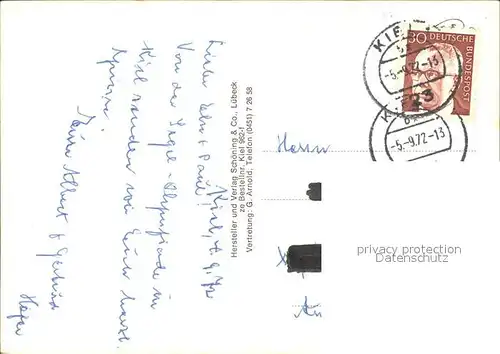 Kiel, 4.9.72
Liebe Elni + Paul!
Von der Segel-Olympiade in
Kiel senden wir Euch herzl.
Grüsse!
Eure Albert + Gertrud
Heyer
Hersteller und Verlag Schöning & Co., Lübeck
ze Bestellnr. Kiel 982-f
Vertretung: G. Arnold, Telefon (0451) 7 26 58
KIEL
5.-9.72-13
23
30
DEUTSCHE
BUNDESPOST
KIEL
-5.-9.72-13
Herrn
privacy protection
Datenschutz